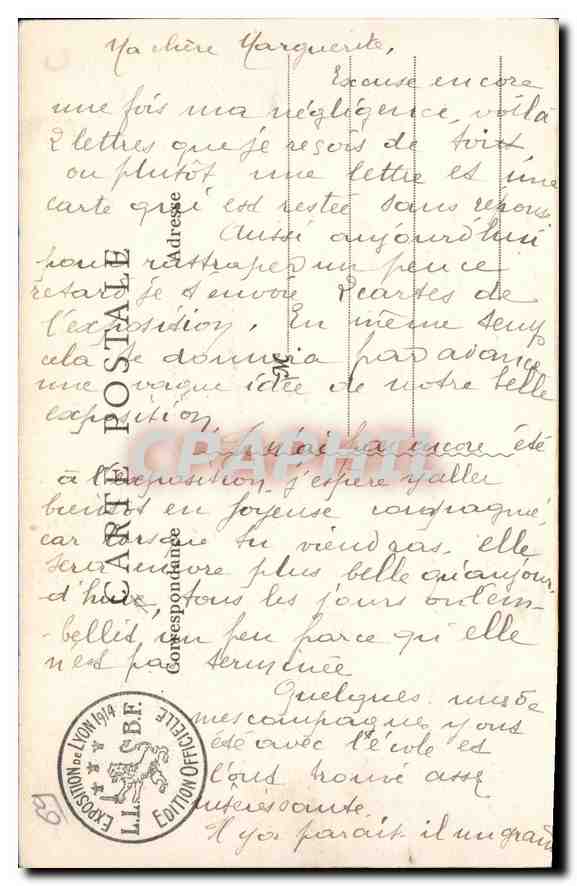 Ma chère Marguerite,
Excuse encore
une fois ma négligence, voilà
2 lettres que je reçois de toi et
ou plutôt une lettre et une
carte qui est restée sans répons
Aussi aujourd'hui
pour rattraper un peu ce
retard je t'envoie 2 cartes de
l'exposition. En même temp
cela te donnera par avance
une vague idée de notre belle
exposition.
Je n'ai pas encore été
à l'exposition j'espère y aller
bientôt en joyeuse compagnie,
car lorsque tu viendras, elle
sera encore plus belle qu'aujour-
d'hui, tous les jours on l'em-
bellit un peu parce qu'elle
n'est pas terminée
Quelques unes de
mes compagnes y ont
été avec l'école et
l'ont trouvé assez
intéressante.
Il y a paraît il un grand
CARTE POSTALE
Correspondance
Adresse
M
CPAPHIL
EXPOSITION DE LYON 1914
EDITION OFFICIELLE
L.L. B.F.